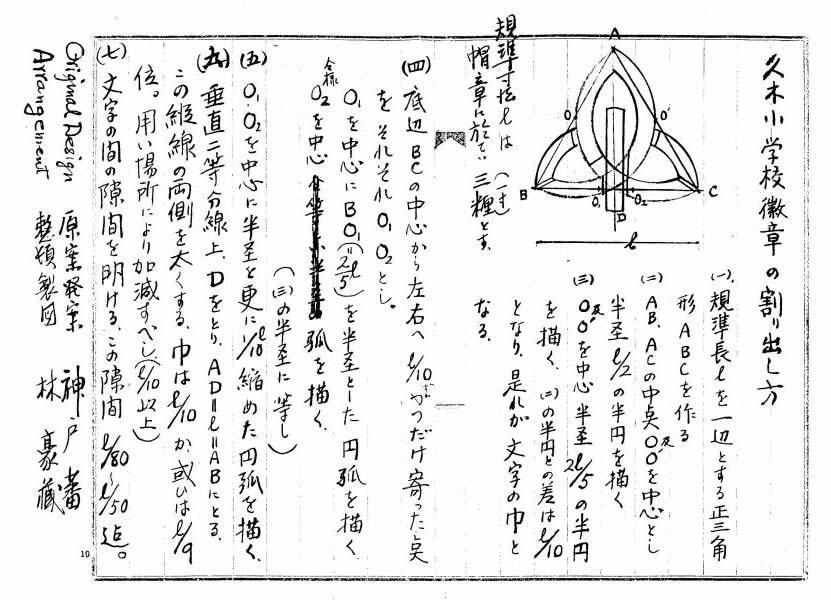 久木小学校徽章の割り出し方
(一)、規準長lを一辺とする正三角
形ABCを作る
(二) AB、ACの中点O及O'を中心とし
半径l/2の半円を描く
(三) O及O'を中心 半径2l/5の半円
を描く、(二)の半円との差はl/10
となり、是れが文字の巾と
なる。
A
O
O'
B
C
O₁
O₂
D
l
規準寸法lは(一寸)
帽章に於てハ三糎とす、
(四) 底辺BCの中心から左右へl/10ずつだけ寄った点
をそれぞれO₁O₂とし。
O₁を中心にBO₁(=2/5l)を半径とした円弧を描く、
O₂を中心 弧を描く、
(三)の半径に等し)
(五) O₁O₂を中心に半径を更に1/10l縮めた円弧を描く、
(六) 垂直二等分線上、Dをとり、AD=l=ABにとる、
この縦線の両側を太くする、巾はl/10か、或ひはl/9
位。用い場所により加減すべし、(l/10以上)
(七) 文字の間の隙間を明ける、この隙間 l/80〜l/50迄。
Original Design 原案発案 神戸蕃
Arrangement 整頓製図 林豪蔵
10